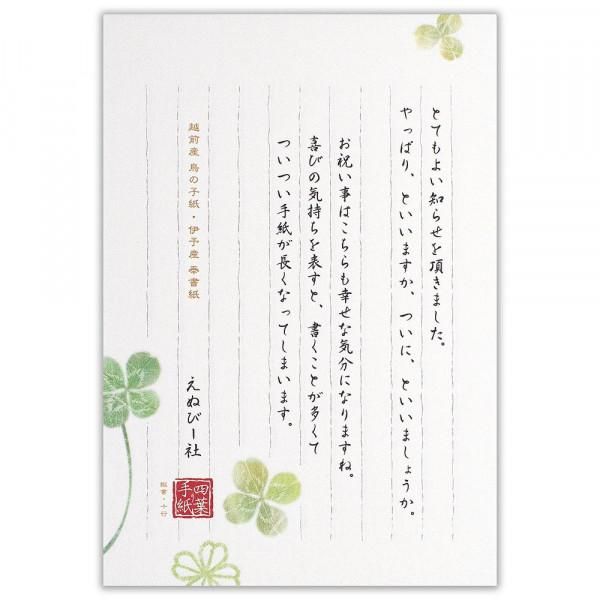 とてもよい知らせを頂きました。
やっぱり、といいますか、ついに、といいましょうか。
お祝い事はこちらも幸せな気分になりますね。
喜びの気持ちを表すと、書くことが多くて
ついつい手紙が長くなってしまいます。
越前産 鳥の子紙・伊予産 奉書紙
えぬびー社
四葉
手紙
縦書・十行